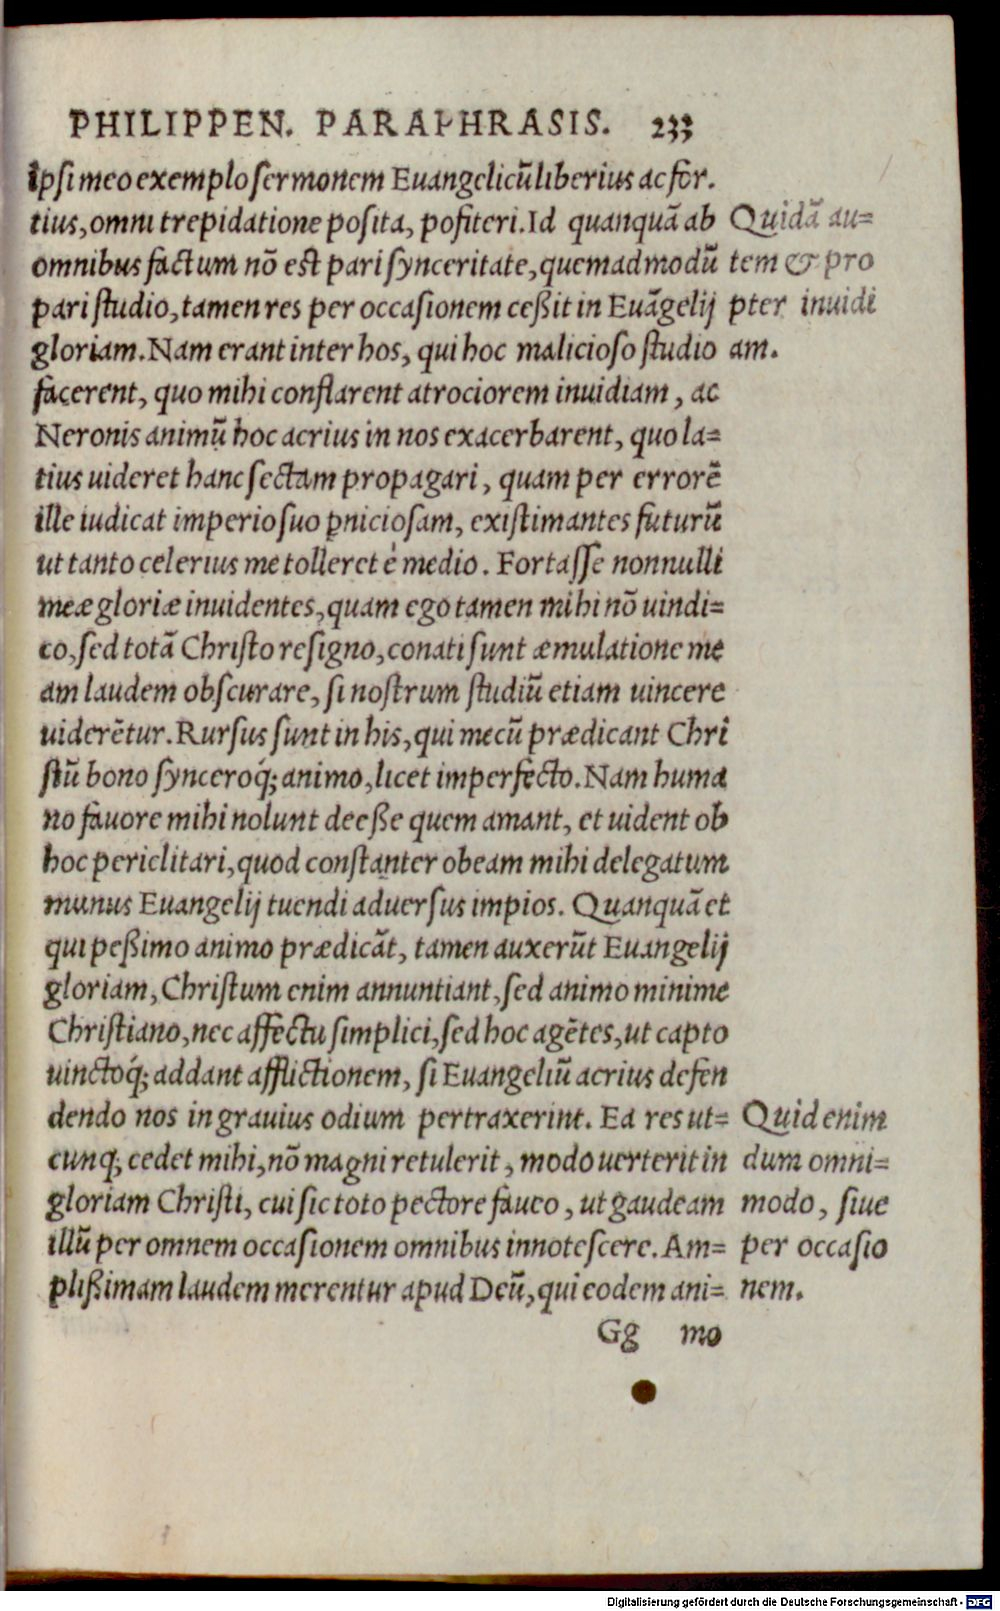 PHILIPPEN. PARAPHRASIS. 233
ipsi meo exemplo sermonem Euangelicũ liberius ac for.
tius, omni trepidatione posita, pofiteri. Id quanquã ab
omnibus factum nõ est pari synceritate, quemadmodũ
pari studio, tamen res per occasionem ceßit in Euãgelij
gloriam. Nam erant inter hos, qui hoc malicioso studio
facerent, quo mihi conflarent atrociorem inuidiam, ac
Neronis animũ hoc acrius in nos exacerbarent, quo la=
tius uideret hanc sectam propagari, quam per errorẽ
ille iudicat imperio suo ꝑniciosam, existimantes futurũ
ut tanto celerius me tolleret è medio. Fortasse nonnulli
meæ gloriæ inuidentes, quam ego tamen mihi nõ uindi=
co, sed totã Christo resigno, conati sunt æmulatione me
am laudem obscurare, si nostrum studiũ etiam uincere
uiderẽtur. Rursus sunt in his, qui mecũ prædicant Chri
stũ bono synceroq́; animo, licet imperfecto. Nam huma
no fauore mihi nolunt deeße quem amant, et uident ob
hoc periclitari, quod constanter obeam mihi delegatum
munus Euangelij tuendi aduersus impios. Quanquã et
qui peßimo animo prædicãt, tamen auxerũt Euangelij
gloriam, Christum enim annuntiant, sed animo minime
Christiano, nec affectu simplici, sed hoc agẽtes, ut capto
uinctoq́; addant afflictionem, si Euangeliũ acrius defen
dendo nos in grauius odium pertraxerint. Ea res ut=
cunq; cedet mihi, nõ magni retulerit, modo uerterit in
gloriam Christi, cui sic toto pectore faueo, ut gaudeam
illũ per omnem occasionem omnibus innotescere. Am=
plißimam laudem merentur apud Deũ, qui eodem ani=
Gg mo
Quidã au=
tem & pro
pter inuidi
am.
Quid enim
dum omni=
modo, siue
per occasio
nem.
Digitalisierung gefördert durch die Deutsche Forschungsgemeinschaft - DFG